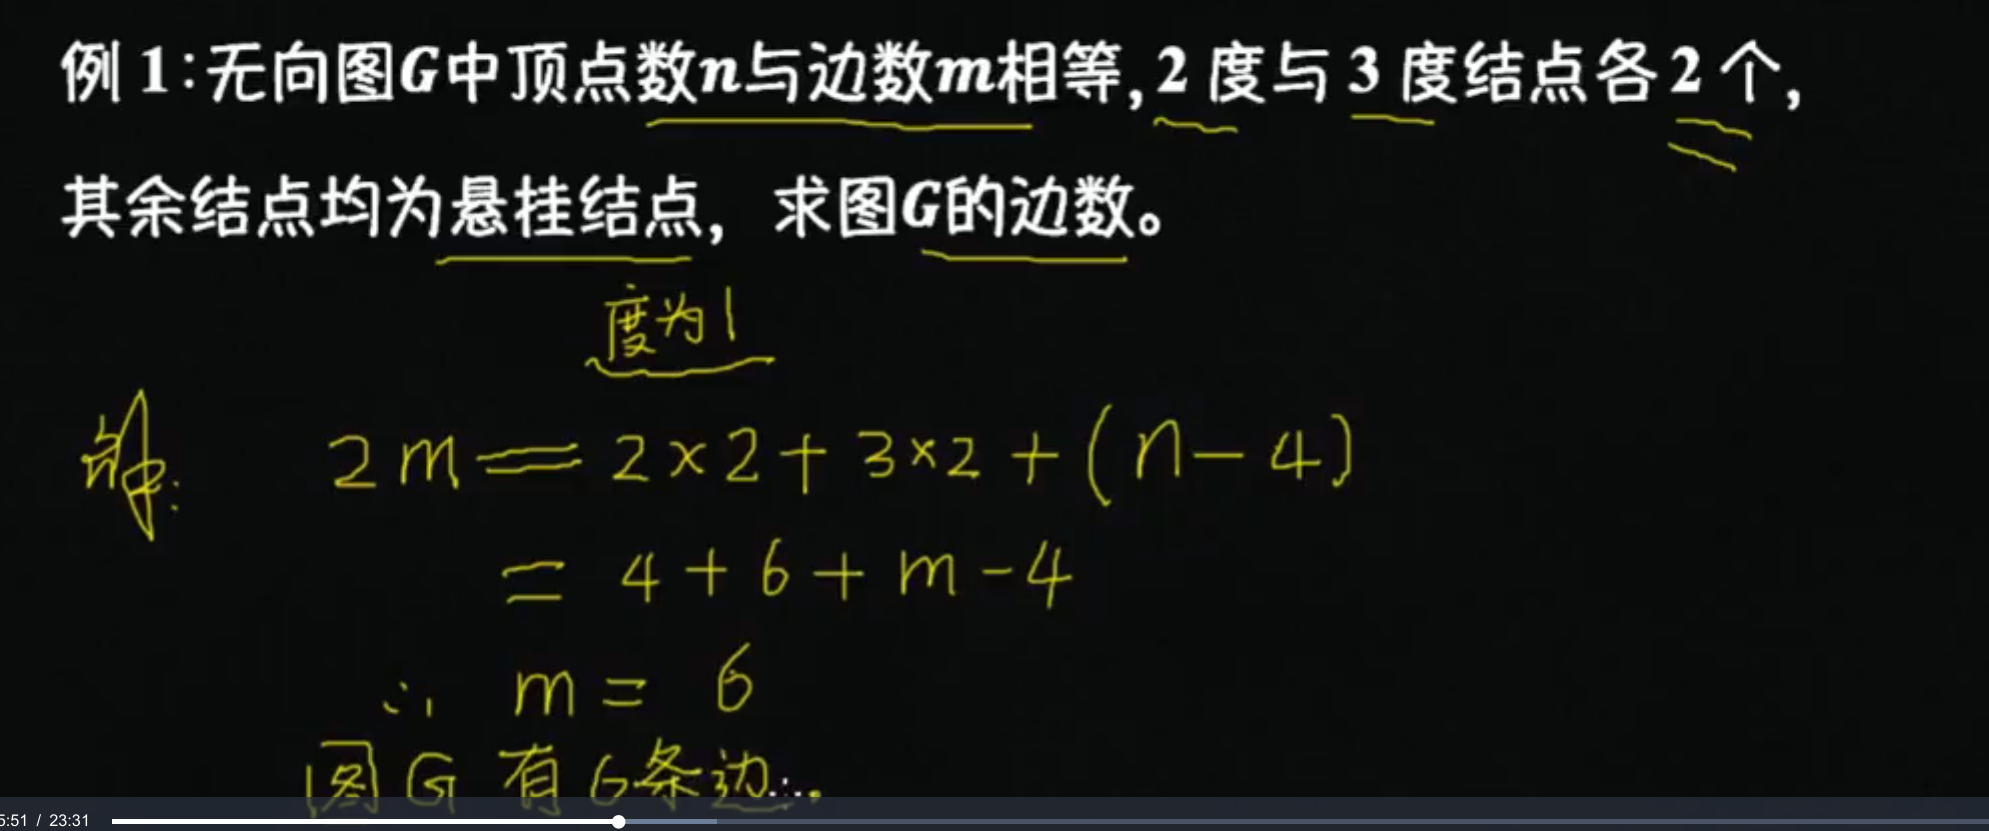 例 1:无向图G中顶点数n与边数m相等,2 度与 3 度结点各 2 个,
其余结点均为悬挂结点，求图G的边数。
度为1
解:
2m=2×2+3×2+(n-4)
=4+6+m-4
∴ m=6
图G有6条边.
5:51 / 23:31